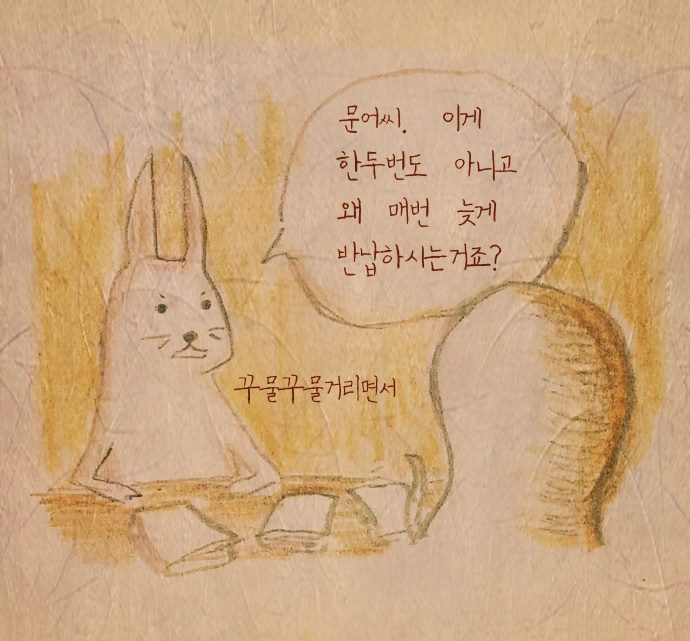 문어씨. 이게
한두번도 아니고
왜 매번 늦게
반납하시는거죠?
꾸물꾸물거리면서